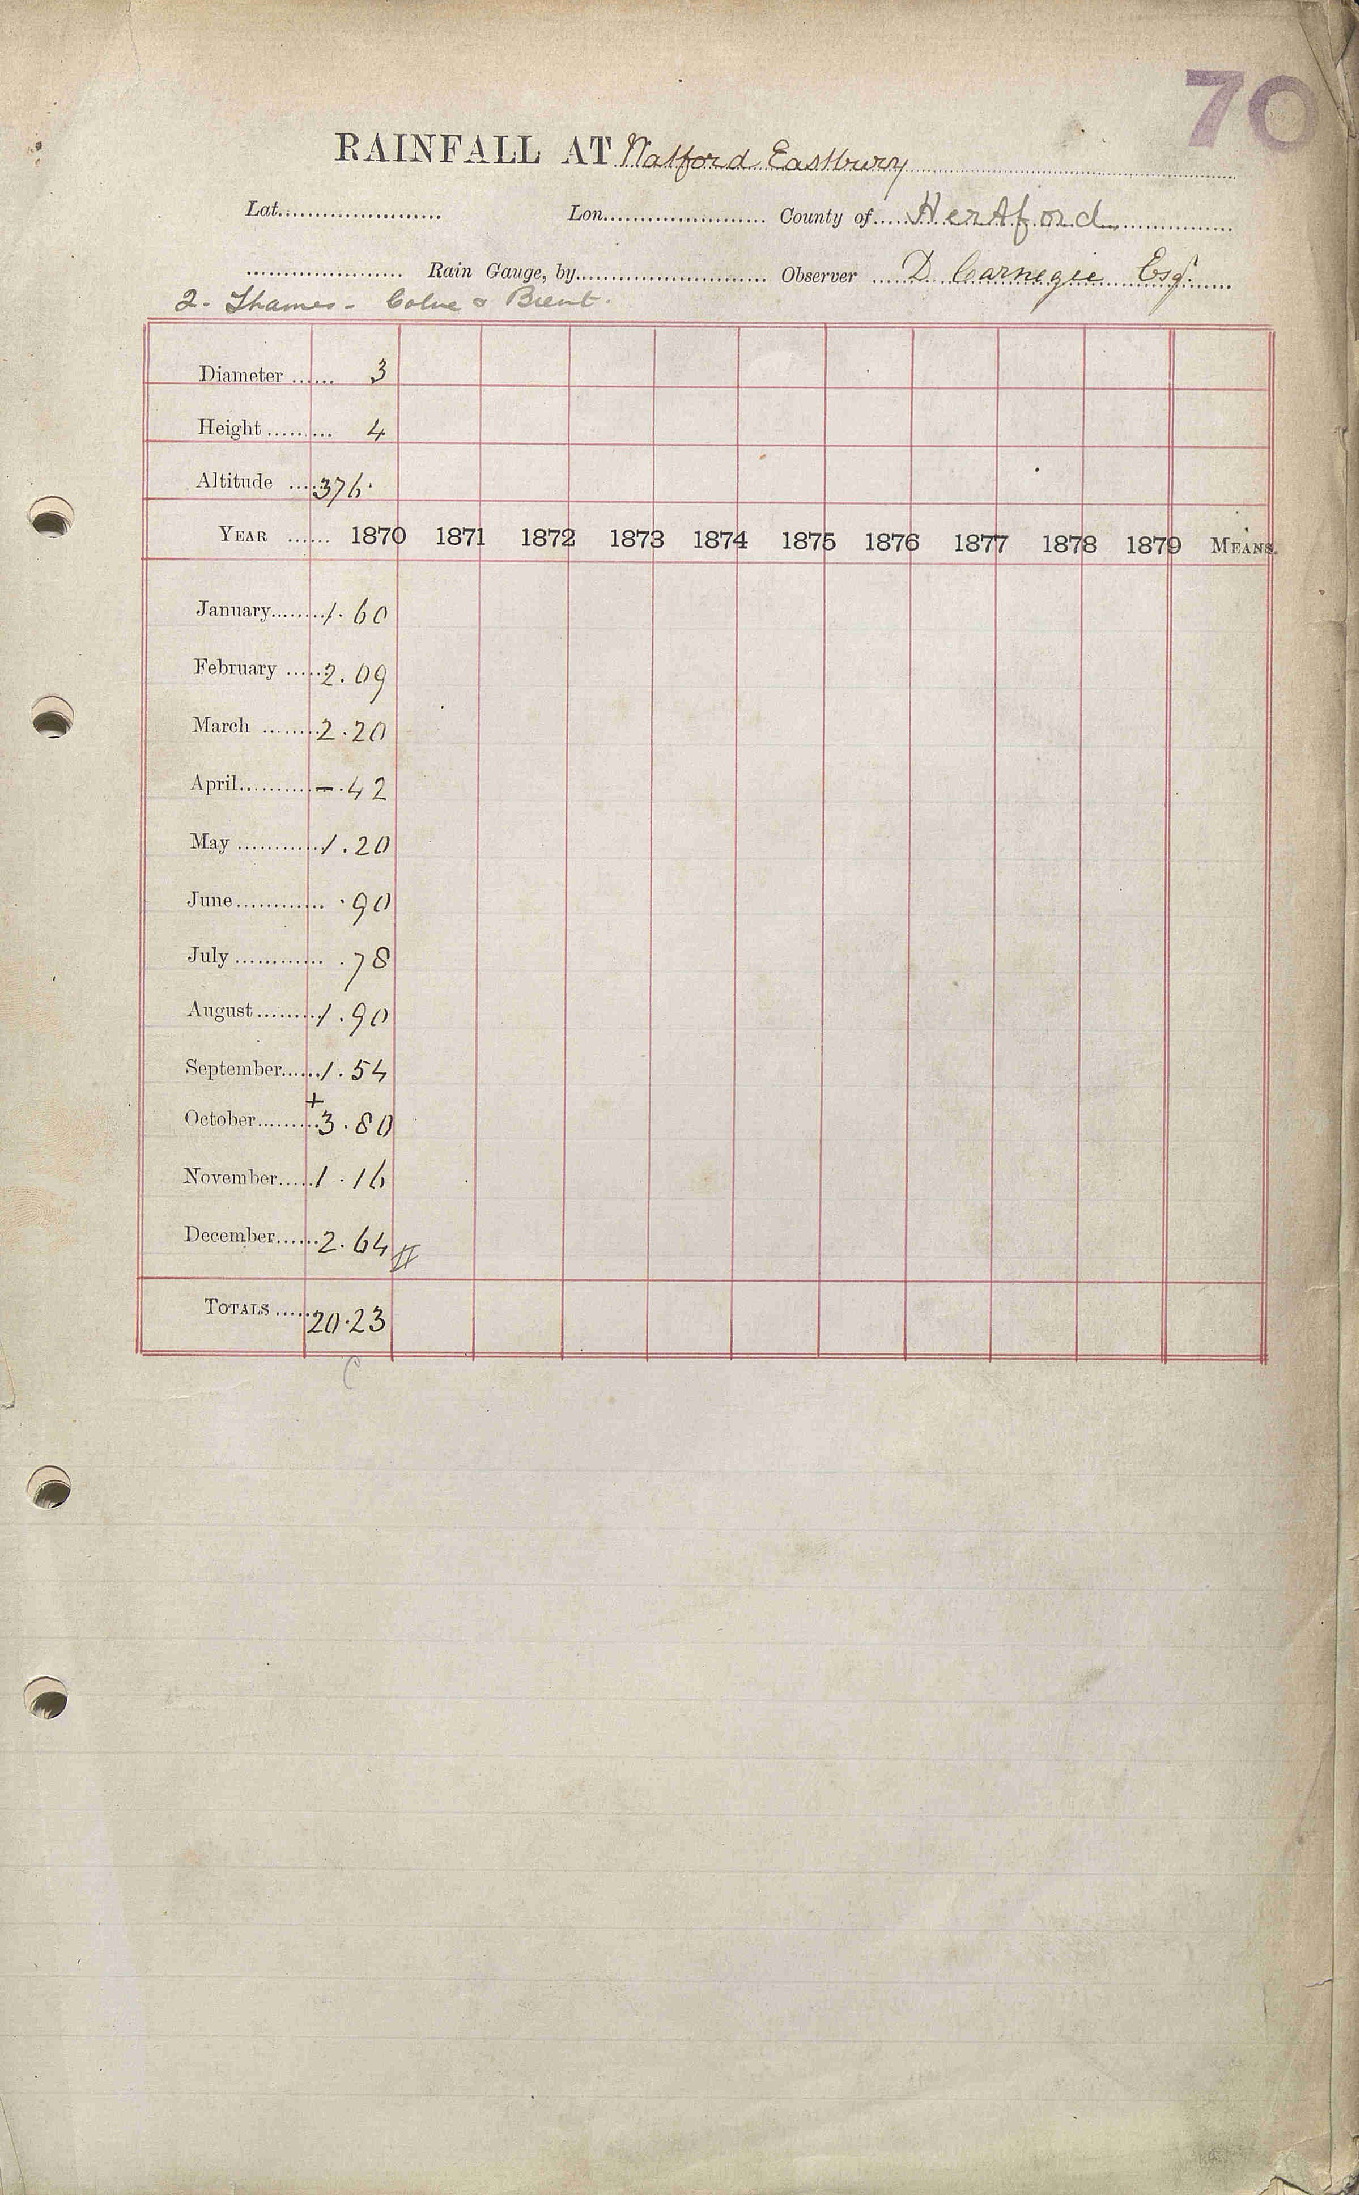 70
RAINFALL AT Watford Eastbury
Lat. Lon. County of Hertford
Rain Gauge, by Observer D Carnegie Esq.
2 - Thames - Colne & Brent.
Diameter 3
Height 4
Altitude 376.
YEAR 1870 1871 1872 1873 1874 1875 1876 1877 1878 1879 MEANS.
January 1.60
February 2.09
March 2.20
April -.42
May 1.20
June .90
July .78
August 1.90
September 1.54
+
October 3.80
November 1.16
December 2.64
TOTALS 20.23
C